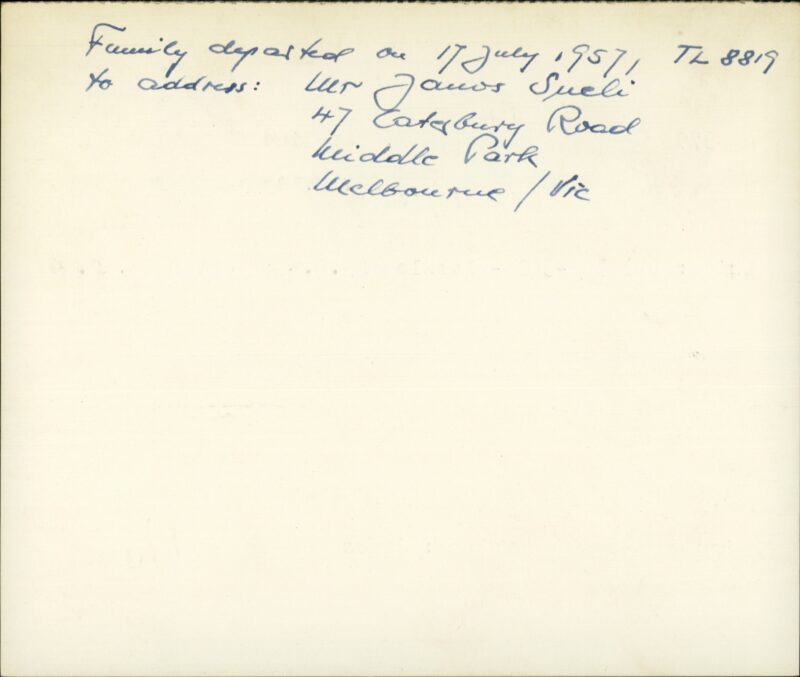 Family departed on 17 July 1957, TL 8819
to address: Mr Janos Sueli
47 Catesbury Road
Middle Park
Melbourne / Vic